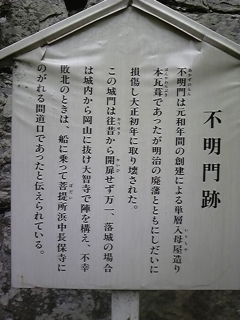 不明門跡
不明門は元和年間の創建による単層入母屋造り
本瓦葺であったが明治の廃藩とともにしだいに
損傷し大正初年に取り壊された。
この城門は往昔から開扉せず万一、落城の場合
は城内から岡山に抜け大智寺で陣を構え、不幸
敗北のときは、船に乗って菩提所浜中長保寺に
のがれる間道口であったと伝えられている。